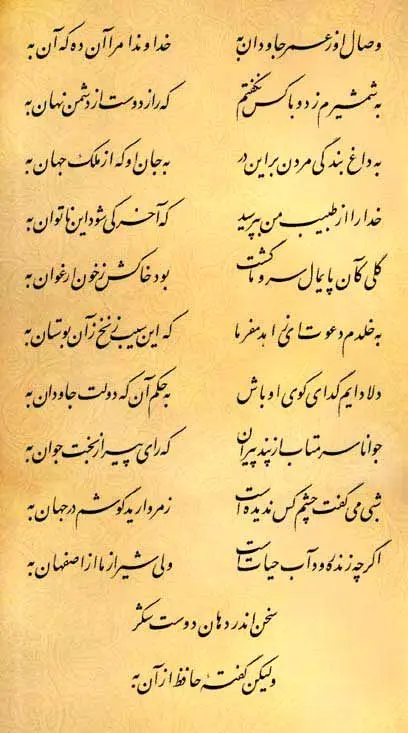 وصال او ز عمر جاودان به خداوندا مرا آن ده که آن به
به شمشیرم زد و با کس نگفتم که راز دوست از دشمن نهان به
به داغ بندگی مردن بر این در به جان او که از ملک جهان به
خدا را از طبیب من بپرسید که آخر کی شود این ناتوان به
گلی کآن پایمال سرو ما گشت بود خاکش ز خون ارغوان به
به خلدم دعوت ای زاهد مفرما که این سیب زنخ زآن بوستان به
دلا دایم گدای کوی او باش به حکم آن که دولت جاودان به
جوانا سر متاب از پند پیران که رای پیر از بخت جوان به
شبی می گفت چشم کس ندیده است ز مروارید گوشم در جهان به
اگر چه زنده رود آب حیات است ولی شیراز ما از اصفهان به
سخن اندر دهان دوست شکر
ولیکن گفتهٔ حافظ از آن به